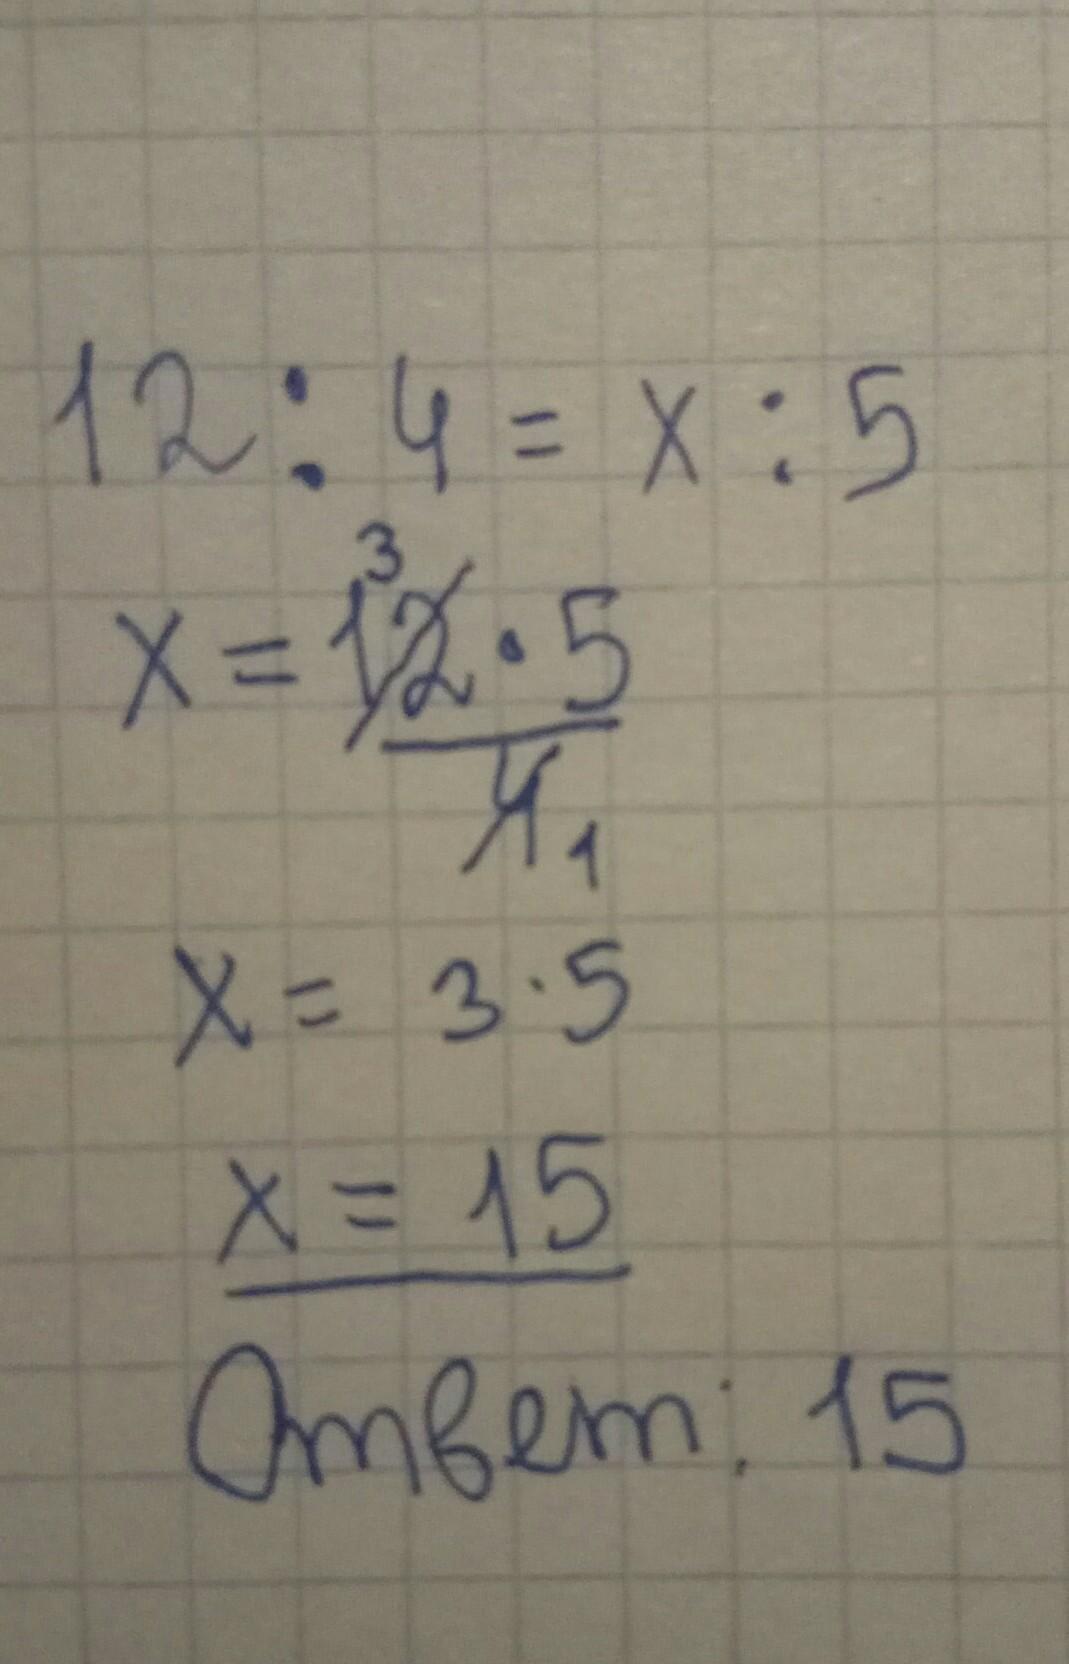 12 : 4 = x : 5
3
x = 12 · 5
4 1
x = 3 · 5
x = 15
Ответ: 15